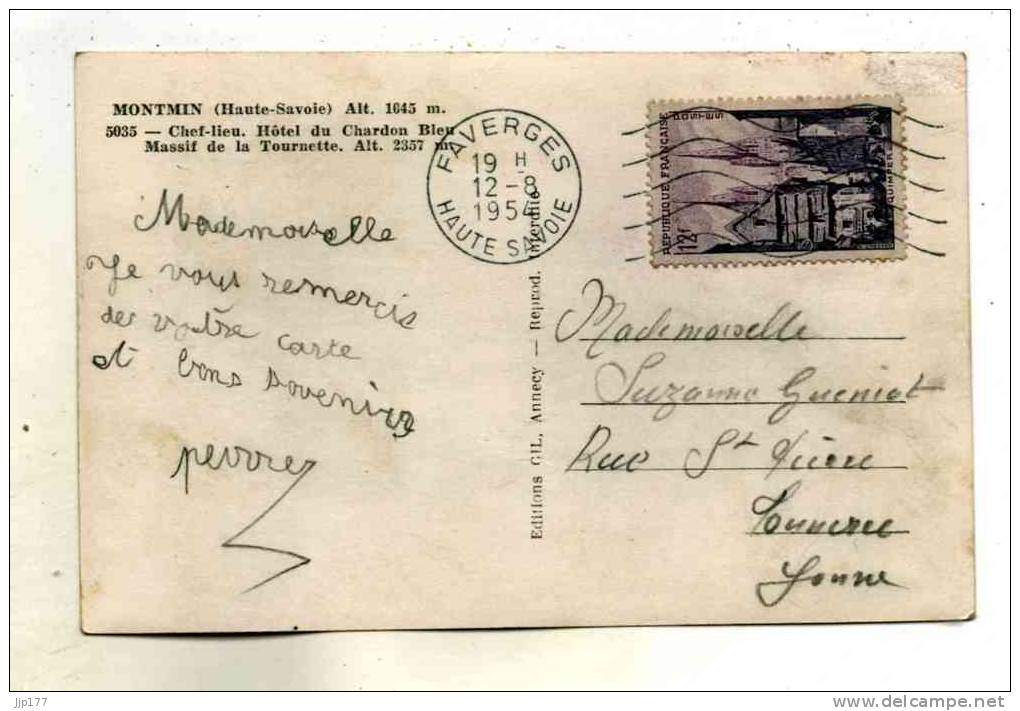 MONTMIN (Haute-Savoie) Alt. 1645 m.
5035 — Chef-lieu. Hôtel du Chardon Bleu
Massif de la Tournette. Alt. 2357 m.
FAVERGES
19 H
12-8
1954
HAUTE SAVOIE
REPUBLIQUE FRANÇAISE
POSTES
12f
QUIMPER
Mademoiselle
Je vous remercie
de votre carte
et bons sovenirs
Editions GIL, Annecy — Reprod. Interdite
Mademoiselle
Suzanne Gueniot
Rue St Pierre
Tonnerre
Yonne
jjp177
delcampe.net